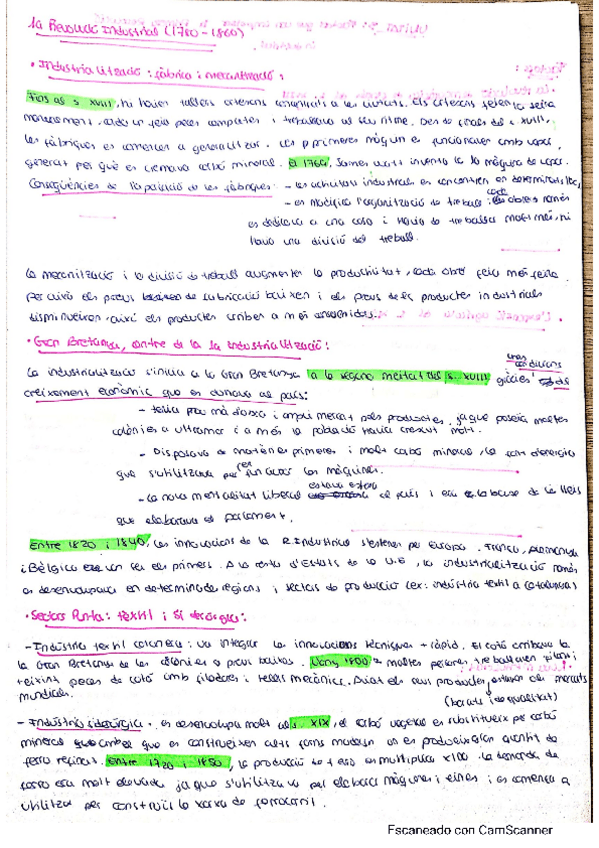 1a Revolució Industrial (1760-1860)
• Industrialització: fàbrica i mecanització:
Fins al s. XVIII, hi havia tallers artesans a les ciutats. Els artesans feien la seva
manualment, cada un feia peces completes i treballava al seu ritme. Des de finals del s. XVIII,
les fàbriques es comencen a generalitzar. Les primeres màquines funcionaven amb vapor,
generat per què es cremava carbó mineral. El 1769, James Watt inventa la màquina de vapor.
Conseqüències de l'aparició de les fàbriques: - les activitats industrials es concentren en determinats llocs,
- es modifica l'organització de treball: cada obrer només
es dedicava a una cosa i havia de treballar molt més, hi
havia una divisió del treball.
La mecanització i la divisió de treball augmenten la productivitat, cada obrer feia més feina.
Per això els preus de fabricació baixen i els preus dels productes industrials
disminueixen, així els productes arriben a més
• Gran Bretanya, centre de la 1a industrialització:
La industrialització s'inicia a la Gran Bretanya a la segona meitat del s. XVIII gràcies
unes condicions
creixement econòmic que es donava al país:
- tenia prou mà d'obra i ampli mercat pels productes, ja que posseïa moltes
colònies a ultramar i a més la població havia crescut molt.
- Disposava de matèries primeres i molt carbó mineral, la font d'energia
que s'utilitzava per fer funcionar les màquines.
- la nova mentalitat liberal estava estesa al país i era la base de les lleis
que elaborava el parlament.
Entre 1820 i 1840, les innovacions de la R. Industrial s'estenen per Europa. França, Alemanya
i Bèlgica van ser els primers. A la resta d'Estats de la U.E, la industrialització només
es desenvolupava en determinades regions i sectors de producció (ex: indústria textil a Catalunya)
• Sectors Punta: tèxtil i siderúrgia:
- Indústria textil cotonera: va integrar les innovacions tècniques + ràpid. El cotó arribava a la
la Gran Bretanya de les colònies a preus baixos. Cap a 1800 moltes persones treballaven filant i
teixint peces de cotó amb filadores i telers mecànics. Aviat els seus productes estaven als mercats
mundials. (barats i de qualitat)
- Indústria siderúrgica: es desenvolupa molt al s. XIX, el carbó vegetal es substitueix per carbó
mineral que es construeixen alts forns moderns on es produeix gran quantitat de
ferro refinat. Entre 1720 i 1850, la producció de ferro es multiplica x100. La demanda de
ferro era molt elevada ja que s'utilitzava per elaborar màquines i eines i es comença a
utilitzar per construir la xarxa de ferrocarril.
Escaneado con CamScanner